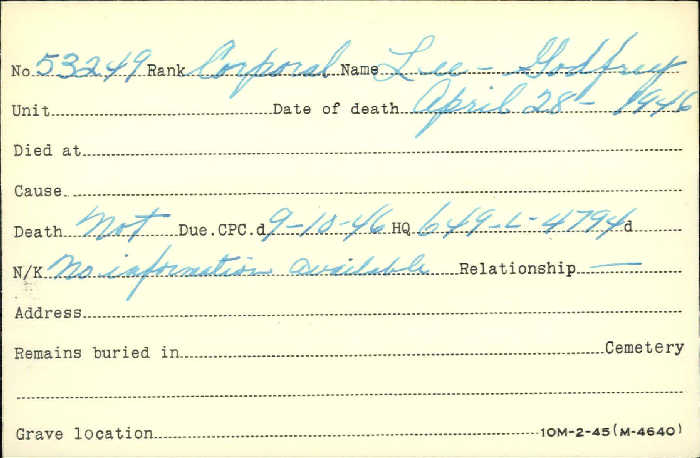 No. 53249 Rank Corporal Name Lee - Godfrey
Unit Date of death April 28 - 1946
Died at
Cause
Death Not Due. CPC.d 9-10-46 HQ 649-L-4794 d
N/K No information available Relationship —
Address
Remains buried in Cemetery
Grave location 10M-2-45 (M-4640)